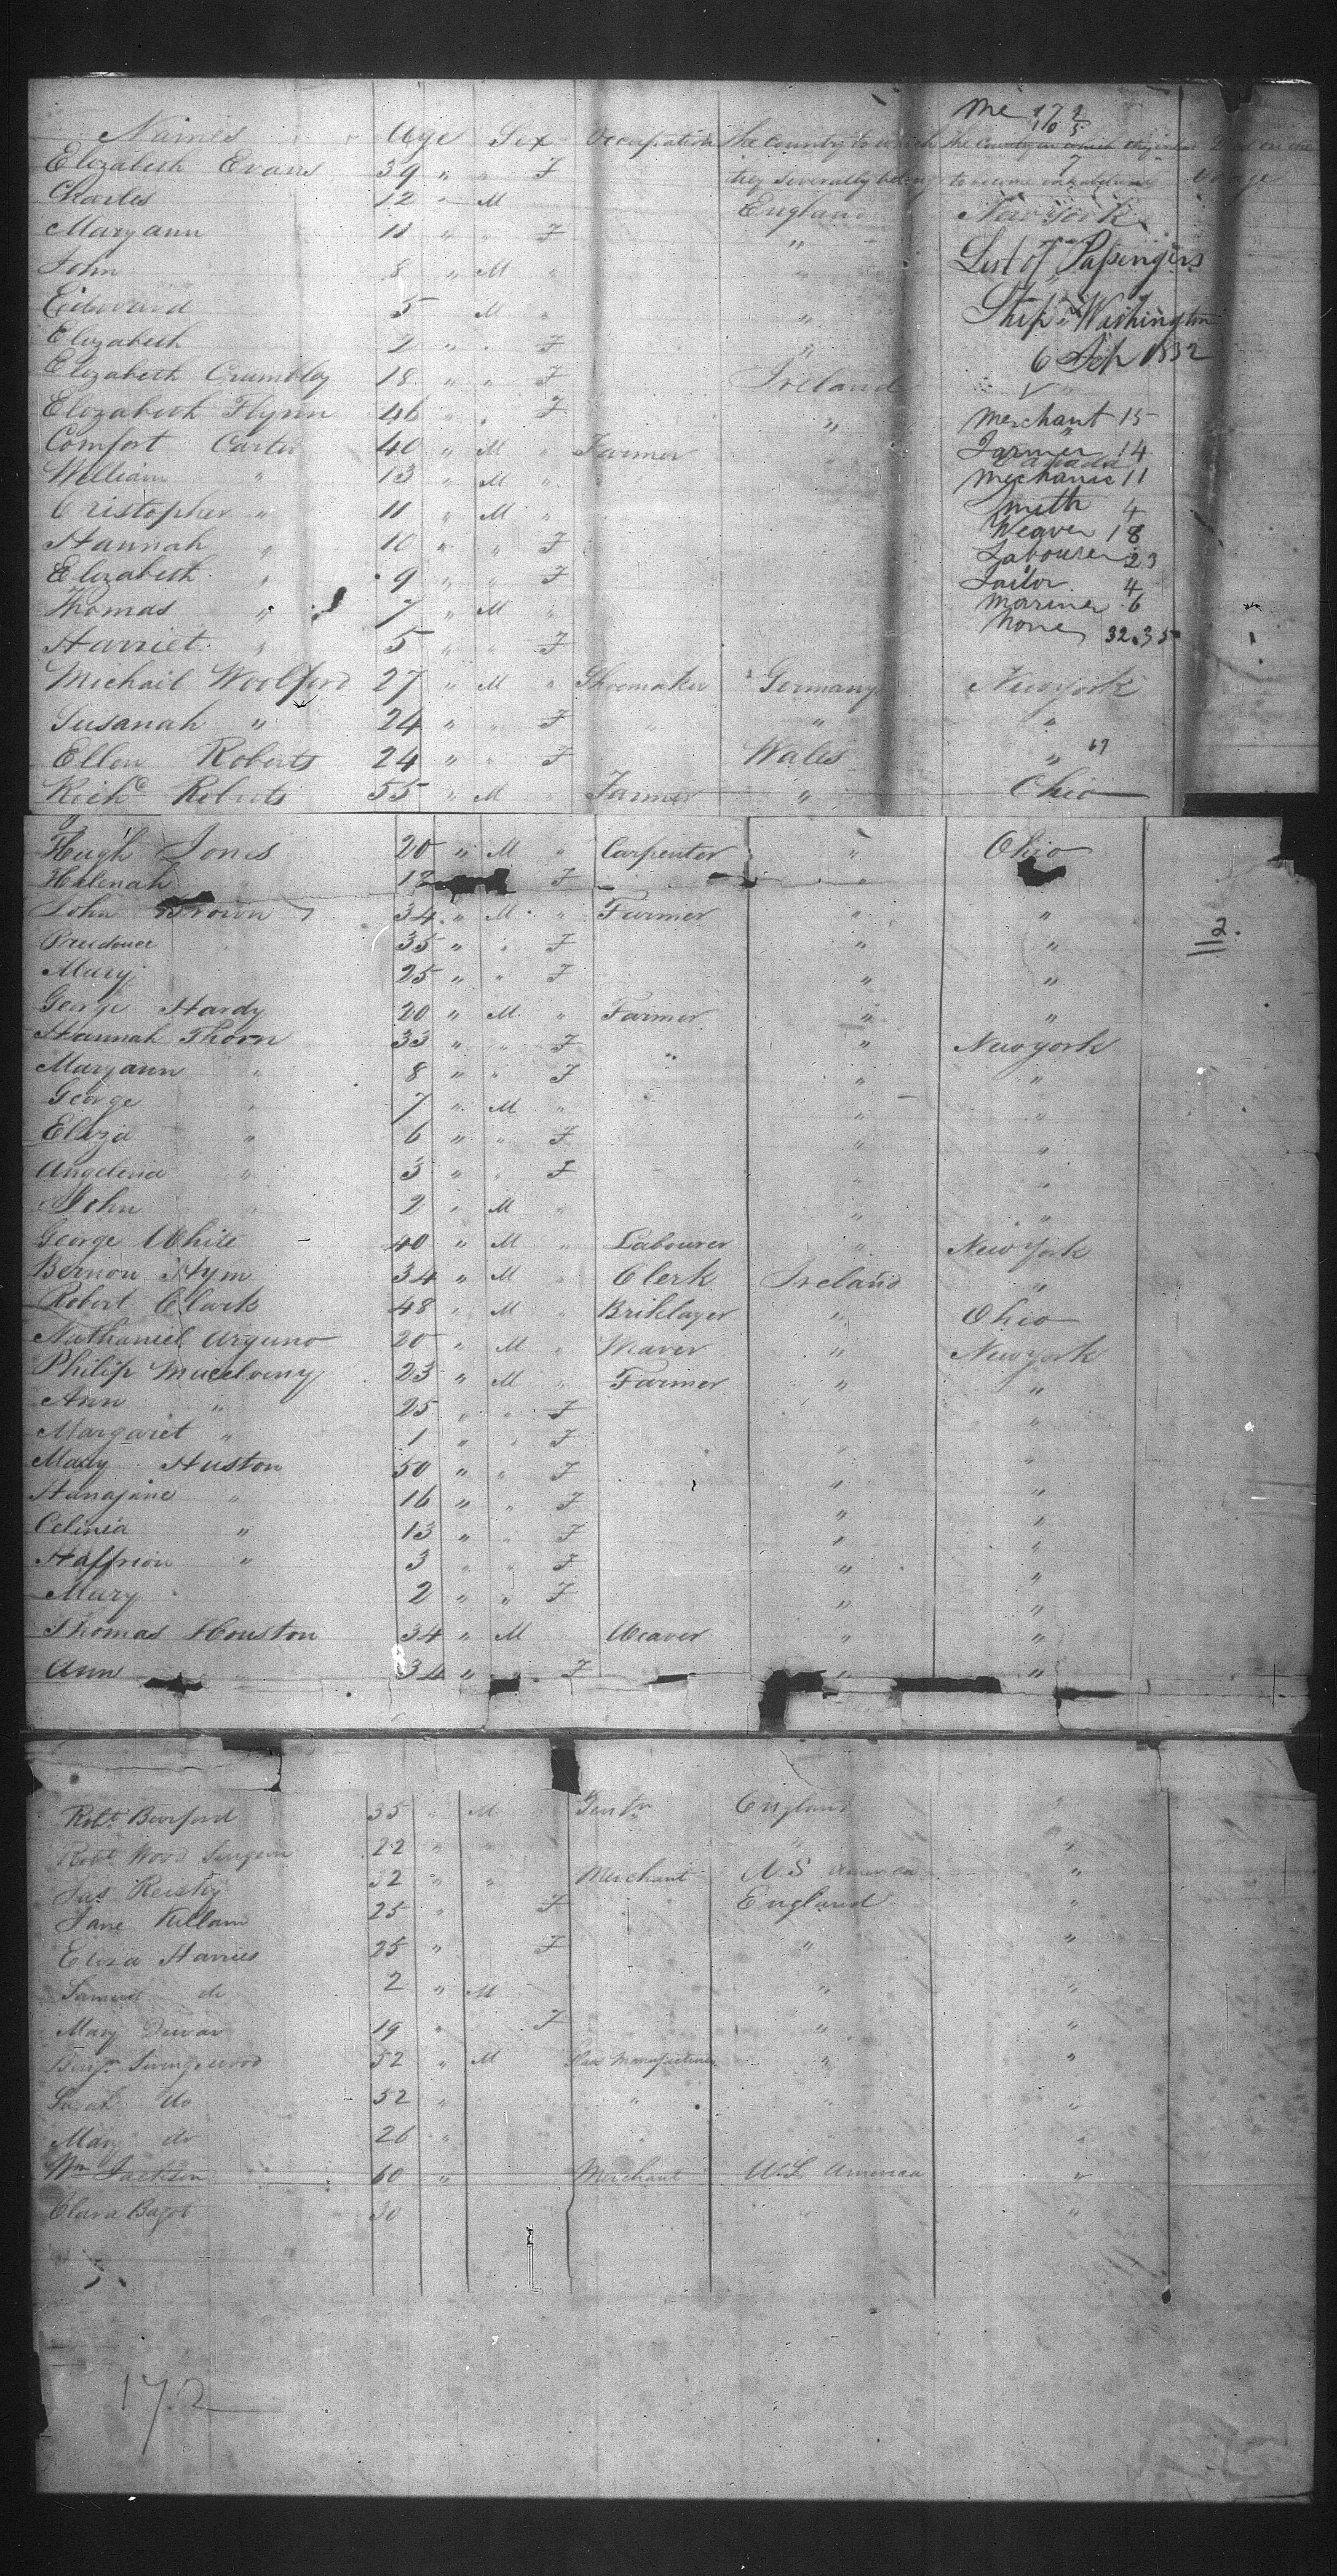 Me 172
105
Names Age Sex Occupation the Country to which the Country in which they intend Died on the
they severally belong to become inhabitants Voyage
Elizabeth Evans 39 " " F
Charles 12 " M England New York
Maryann 11 " " F "
John 8 " M " " List of Passengers
Edward 5 M " " Ship Washington
Elizabeth 2 " " F " 6 Sep 1832
Elizabeth Crumbley 18 " " F Ireland
Elizabeth Flynn 46 " " F " Merchant 15
Comfort Carter 40 " M " Farmer Farmer 14
Canada
William " 13 " M " Mechanic 11
Cristopher " 11 " M " Smith 4
Hannah " 10 " " F Weaver 18
Labourer 23
Elizabeth " 9 " " F Tailor 4
Thomas " 7 " M " Mariner 6
Harriet " 5 " " F None 32.35
Michail Woolford 27 " M " Shoemaker Germany New york
Susanah " 24 " " F " "
Ellen Roberts 24 " " F Wales " 67
Richd Roberts 55 " M " Farmer " Ohio
Hugh Jones 20 " M " Carpenter " Ohio
Helenah " 12 F
John Brown 34 " M " Farmer " "
Prudence 35 " " F " " 112.
Mary 25 " " F " "
George Hardy 20 " M " Farmer " "
Hannah Thorn 33 " " F " New york
Maryann " 8 " " F " "
George " 7 " M " " "
Eliza " 6 " " F " "
Angelina " 3 " " F " "
John " 2 " M " " "
George White 40 " M " Labourer " New York
Bernon Hym 34 " M " Clerk Ireland "
Robert Clark 48 " M " Briklayer " Ohio
Nathaniel 20 " M " Weaver " New york
Philip 23 " M " Farmer " "
Ann " 25 " " F "
Margaret " 1 " " F " "
Mary Huston 50 " " F " "
Hanajane " 16 " " F " "
Celinia " 13 " " F " "
" 3 " " F " "
Mary 2 " " F " "
Thomas Houston 34 " M Weaver " "
Ann " 34 " " F " "
Robt. 35 " M England "
Robt. Wood 22 " " " "
Jas 32 " " Merchant America "
Jane Killam 25 " F England "
Eliza Harries 25 " F " "
Samuel do 2 " M " "
Mary 19 " F " "
Benjn. 52 " M Glass Manufacturer " "
Sarah do 52 " " " "
Mary do 26 " "
Wm Jackson 60 " Merchant America "
Clara Bagot 30 "
172